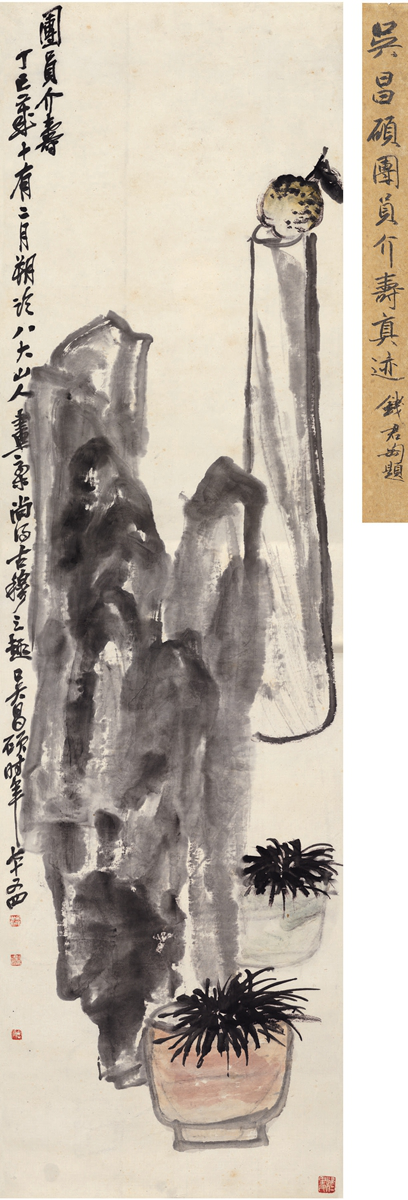 團員介壽
丁巳歲十有二月朔臨八大山人畫宗尚得古穆之趣吳昌碩時年七十四
吳昌碩團員介壽真迹 錢君匋題